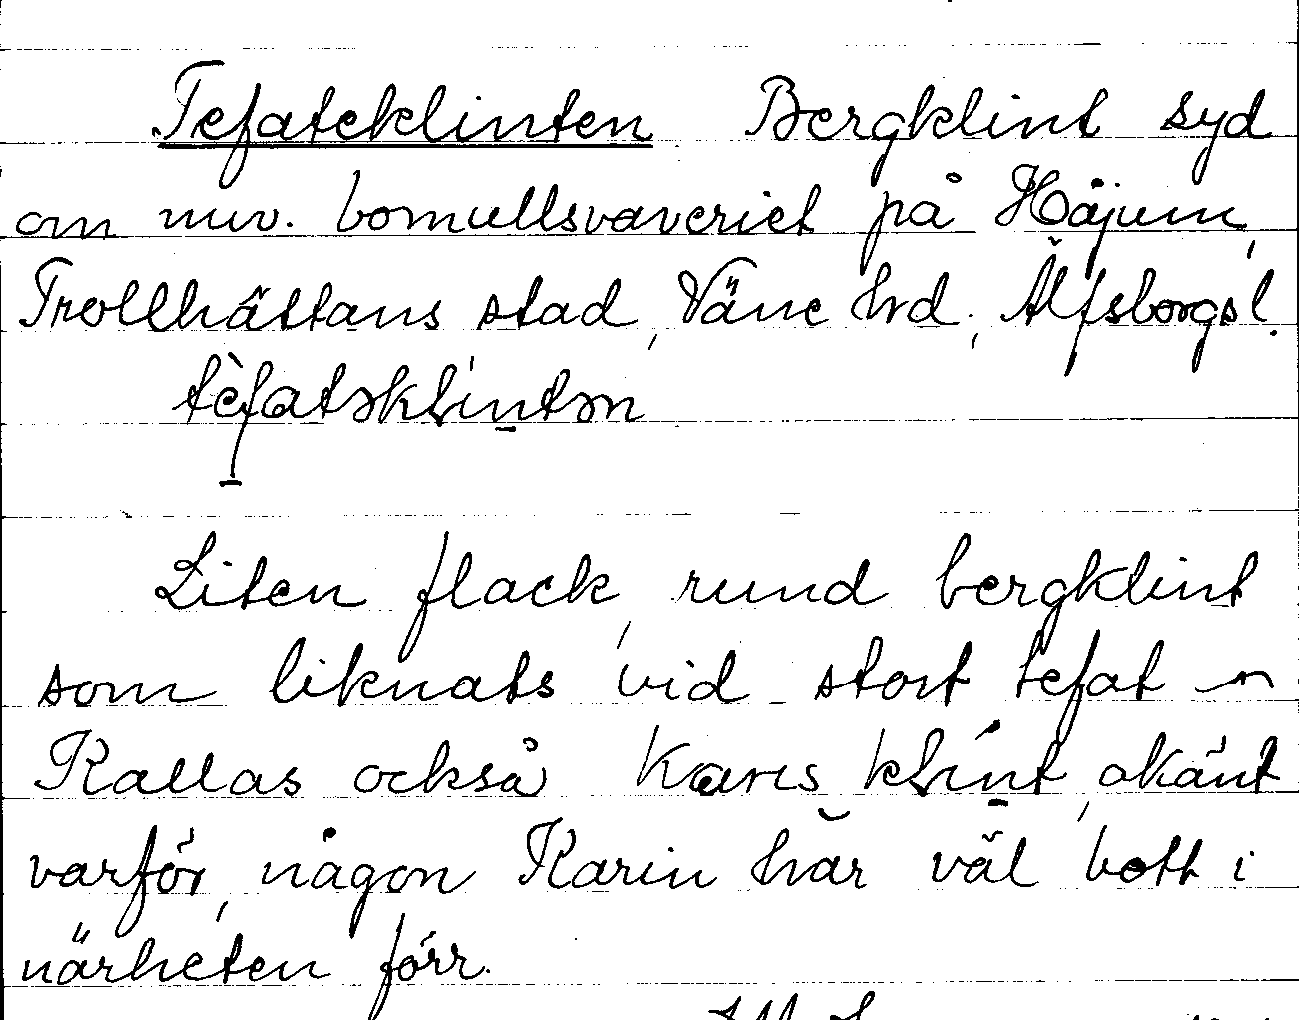 Tefateklinten Bergklint syd
om nuv. bomullsväveriet på Håjum,
Trollhättans stad, Väne hrd., Älfsborgs l.
Liten flack, rund bergklint
som liknats vid stort tefat
Kallas också klint, okänt
varför, någon Karin har väl bott i
närheten förr.